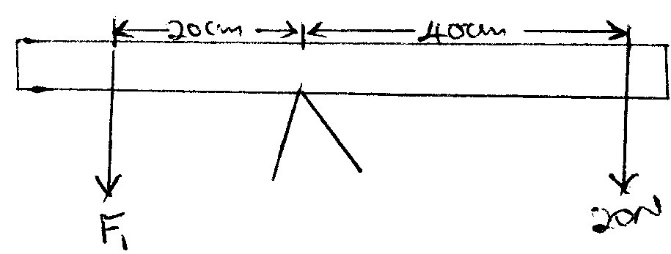 20cm 40cm
F₁ 20N